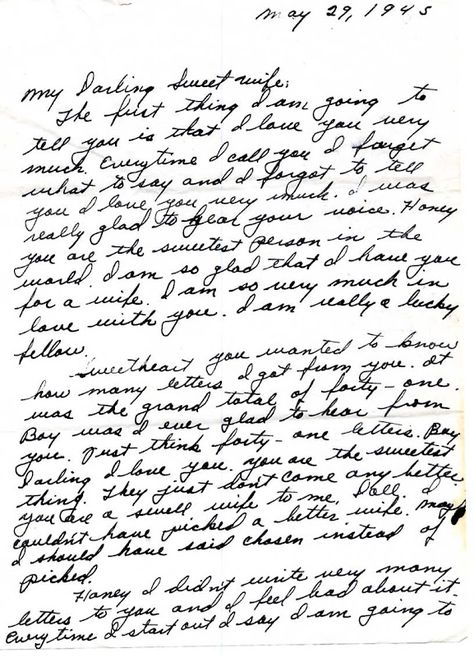 May 29, 1945
My Darling Sweet wife:
The first thing I am going to
tell you is that I love you very
much. Everytime I call you I forget
what to say and I forgot to tell
you I love you very much. I was
really glad to hear your voice. Honey
you are the sweetest person in the
world. I am so glad that I have you
for a wife. I am so very much in
love with you. I am really a lucky
fellow.
Sweetheart you wanted to know
how many letters I got from you. It
was the grand total of forty-one.
Boy was I ever glad to hear from
you. Just think forty-one letters. Boy
Darling I love you. You are the sweetest
thing. They just don't come any better
you are a swell wife to me, Doll. I
couldn't have picked a better wife. Maybe
I should have said chosen instead of
picked.
Honey I didn't write very many
letters to you and I feel bad about it.
Everytime I start out I say I am going to